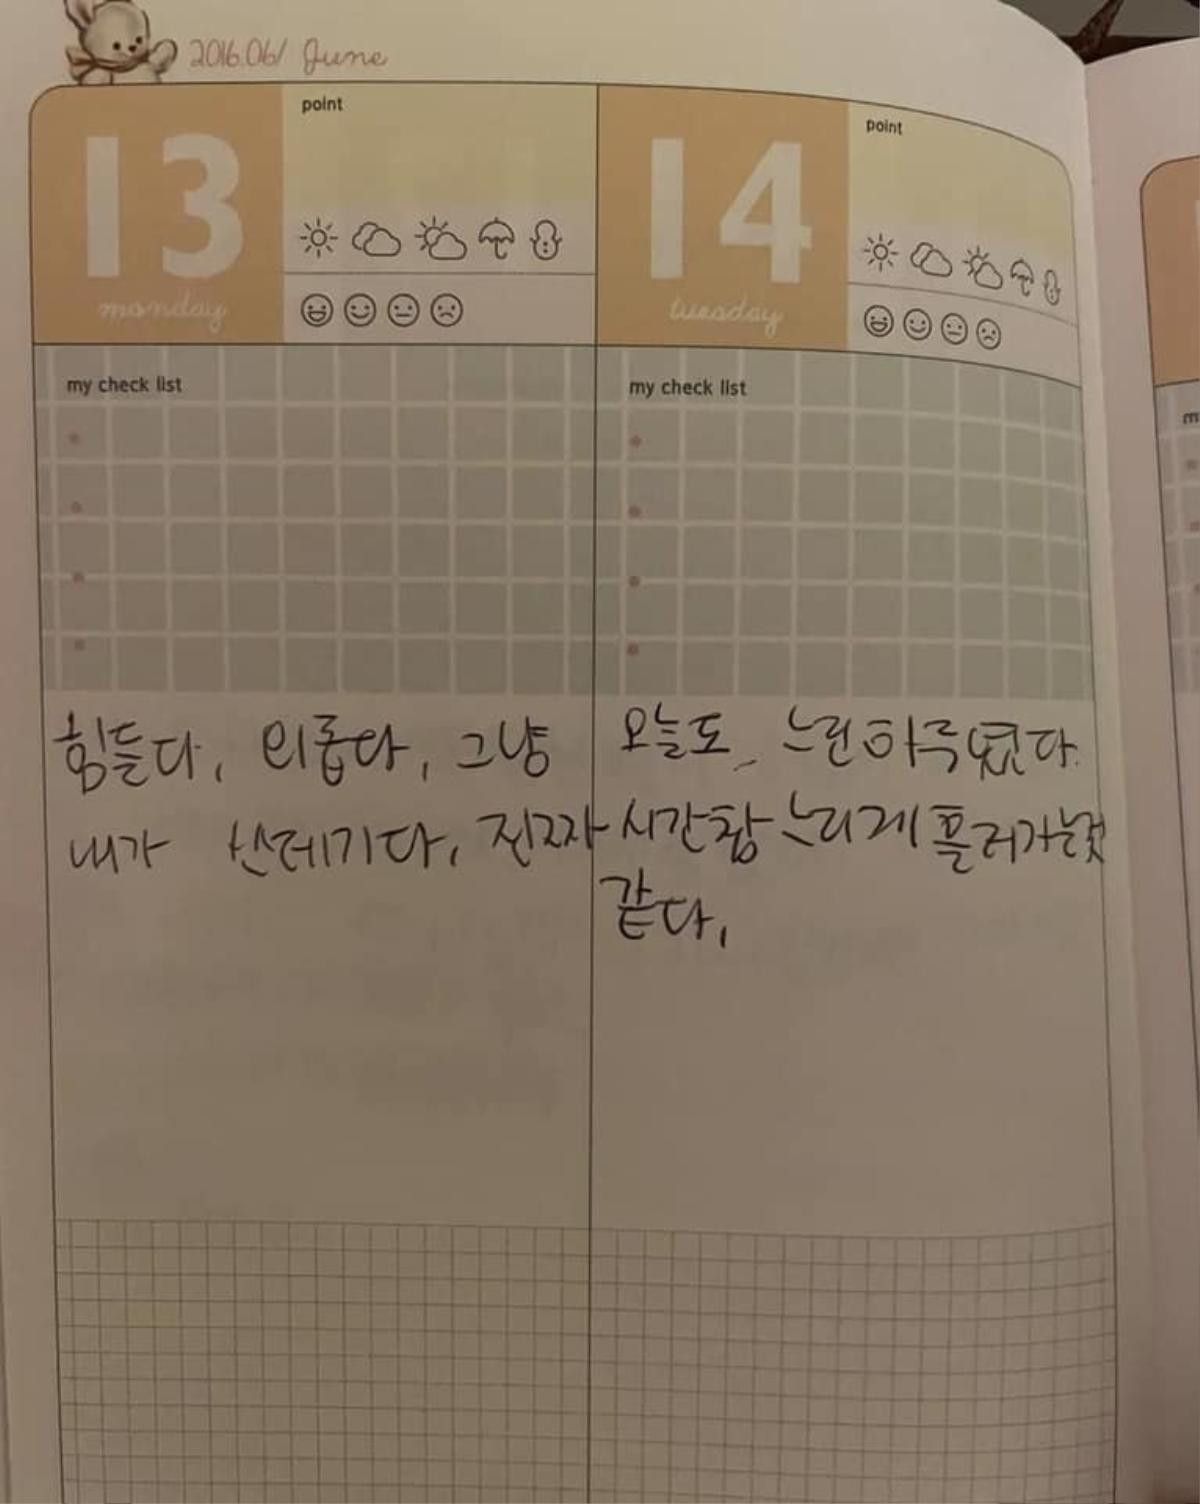 2016.06/ June
13
monday
point
my check list
힘들다, 외롭다, 그냥
내가 쓰레기다, 진짜
14
tuesday
point
my check list
오늘도 느린하루였다.
시간참 느리게 흘러가는것
같다,
m